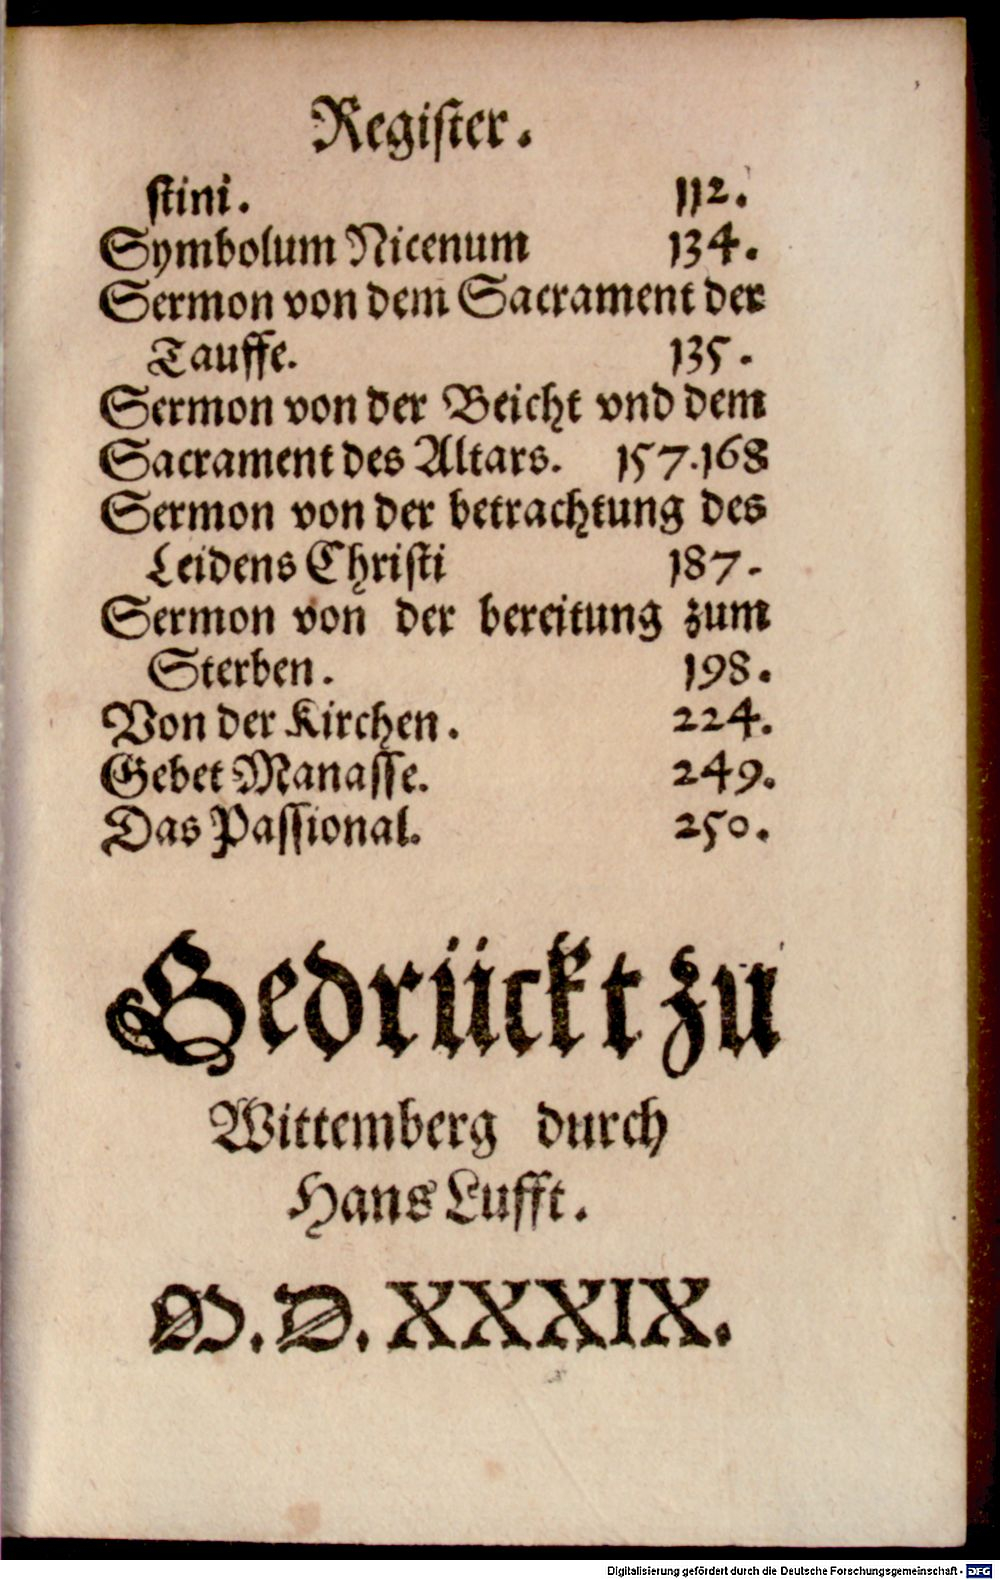 Register.
stini. 112.
Symbolum Nicenum 134.
Sermon von dem Sacrament der
Tauffe. 135.
Sermon von der Beicht vnd dem
Sacrament des Altars. 157.168
Sermon von der betrachtung des
Leidens Christi 187.
Sermon von der bereitung zum
Sterben. 198.
Von der Kirchen. 224.
Gebet Manasse. 249.
Das Passional. 250.
Gedrückt zu
Wittemberg durch
Hans Lufft.
M. D. XXXIX.
Digitalisierung gefördert durch die Deutsche Forschungsgemeinschaft - DFG